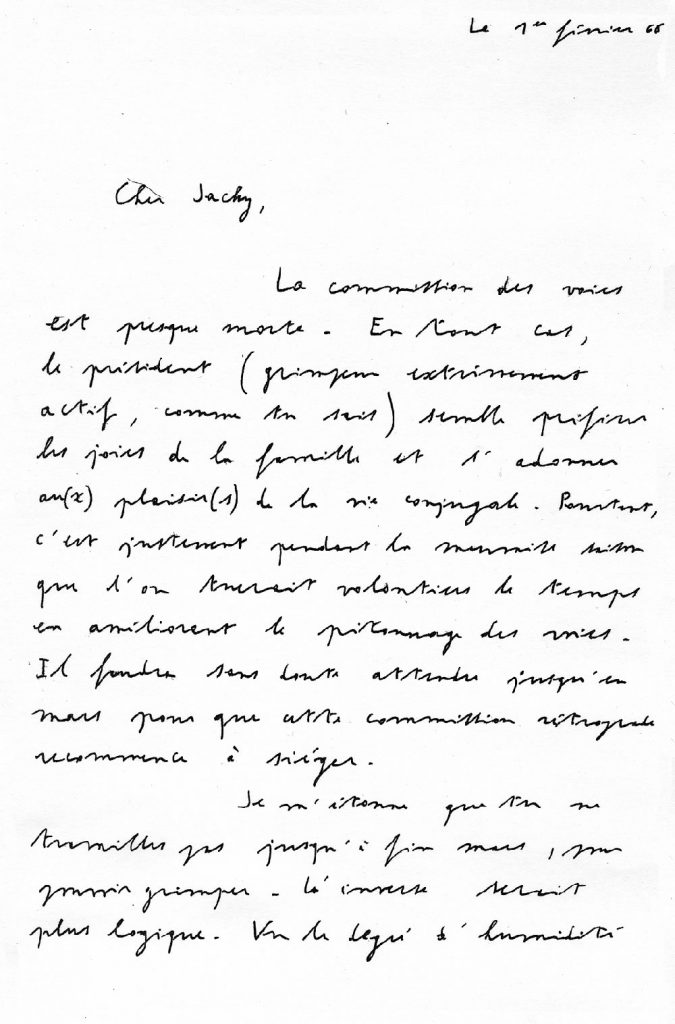 Le 1er février 66
Cher Jacky,
La commission des voies
est presque morte. En tout cas,
le président (grimpeur extrêmement
actif, comme tu sais) semble préférer
les joies de la famille et s'adonner
au(x) plaisir(s) de la vie conjugale. Pourtant,
c'est justement pendant la mauvaise saison
que l'on tuerait volontiers le temps
en améliorant le pitonnage des voies.
Il faudra sans doute attendre jusqu'en
mars pour que cette commission rétrograde
recommence à siéger.
Je m'étonne que tu ne
travailles pas jusqu'à fin mars, pour
pouvoir grimper. L'inverse serait
plus logique. Vu le degré d'humidité